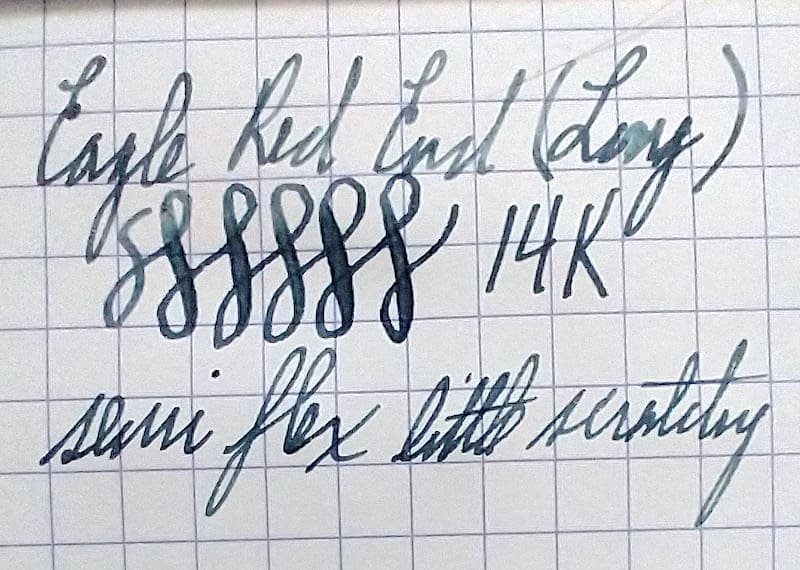 Eagle Red End (Long)
14K
semi flex little scratchy